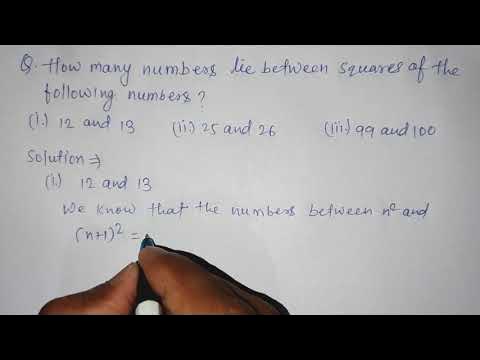 Q. How many numbers lie between squares of the
following numbers?
(i.) 12 and 13 (ii.) 25 and 26 (iii.) 99 and 100
Solution ⇒
(i.) 12 and 13
We know that the numbers between n² and
(n+1)² =